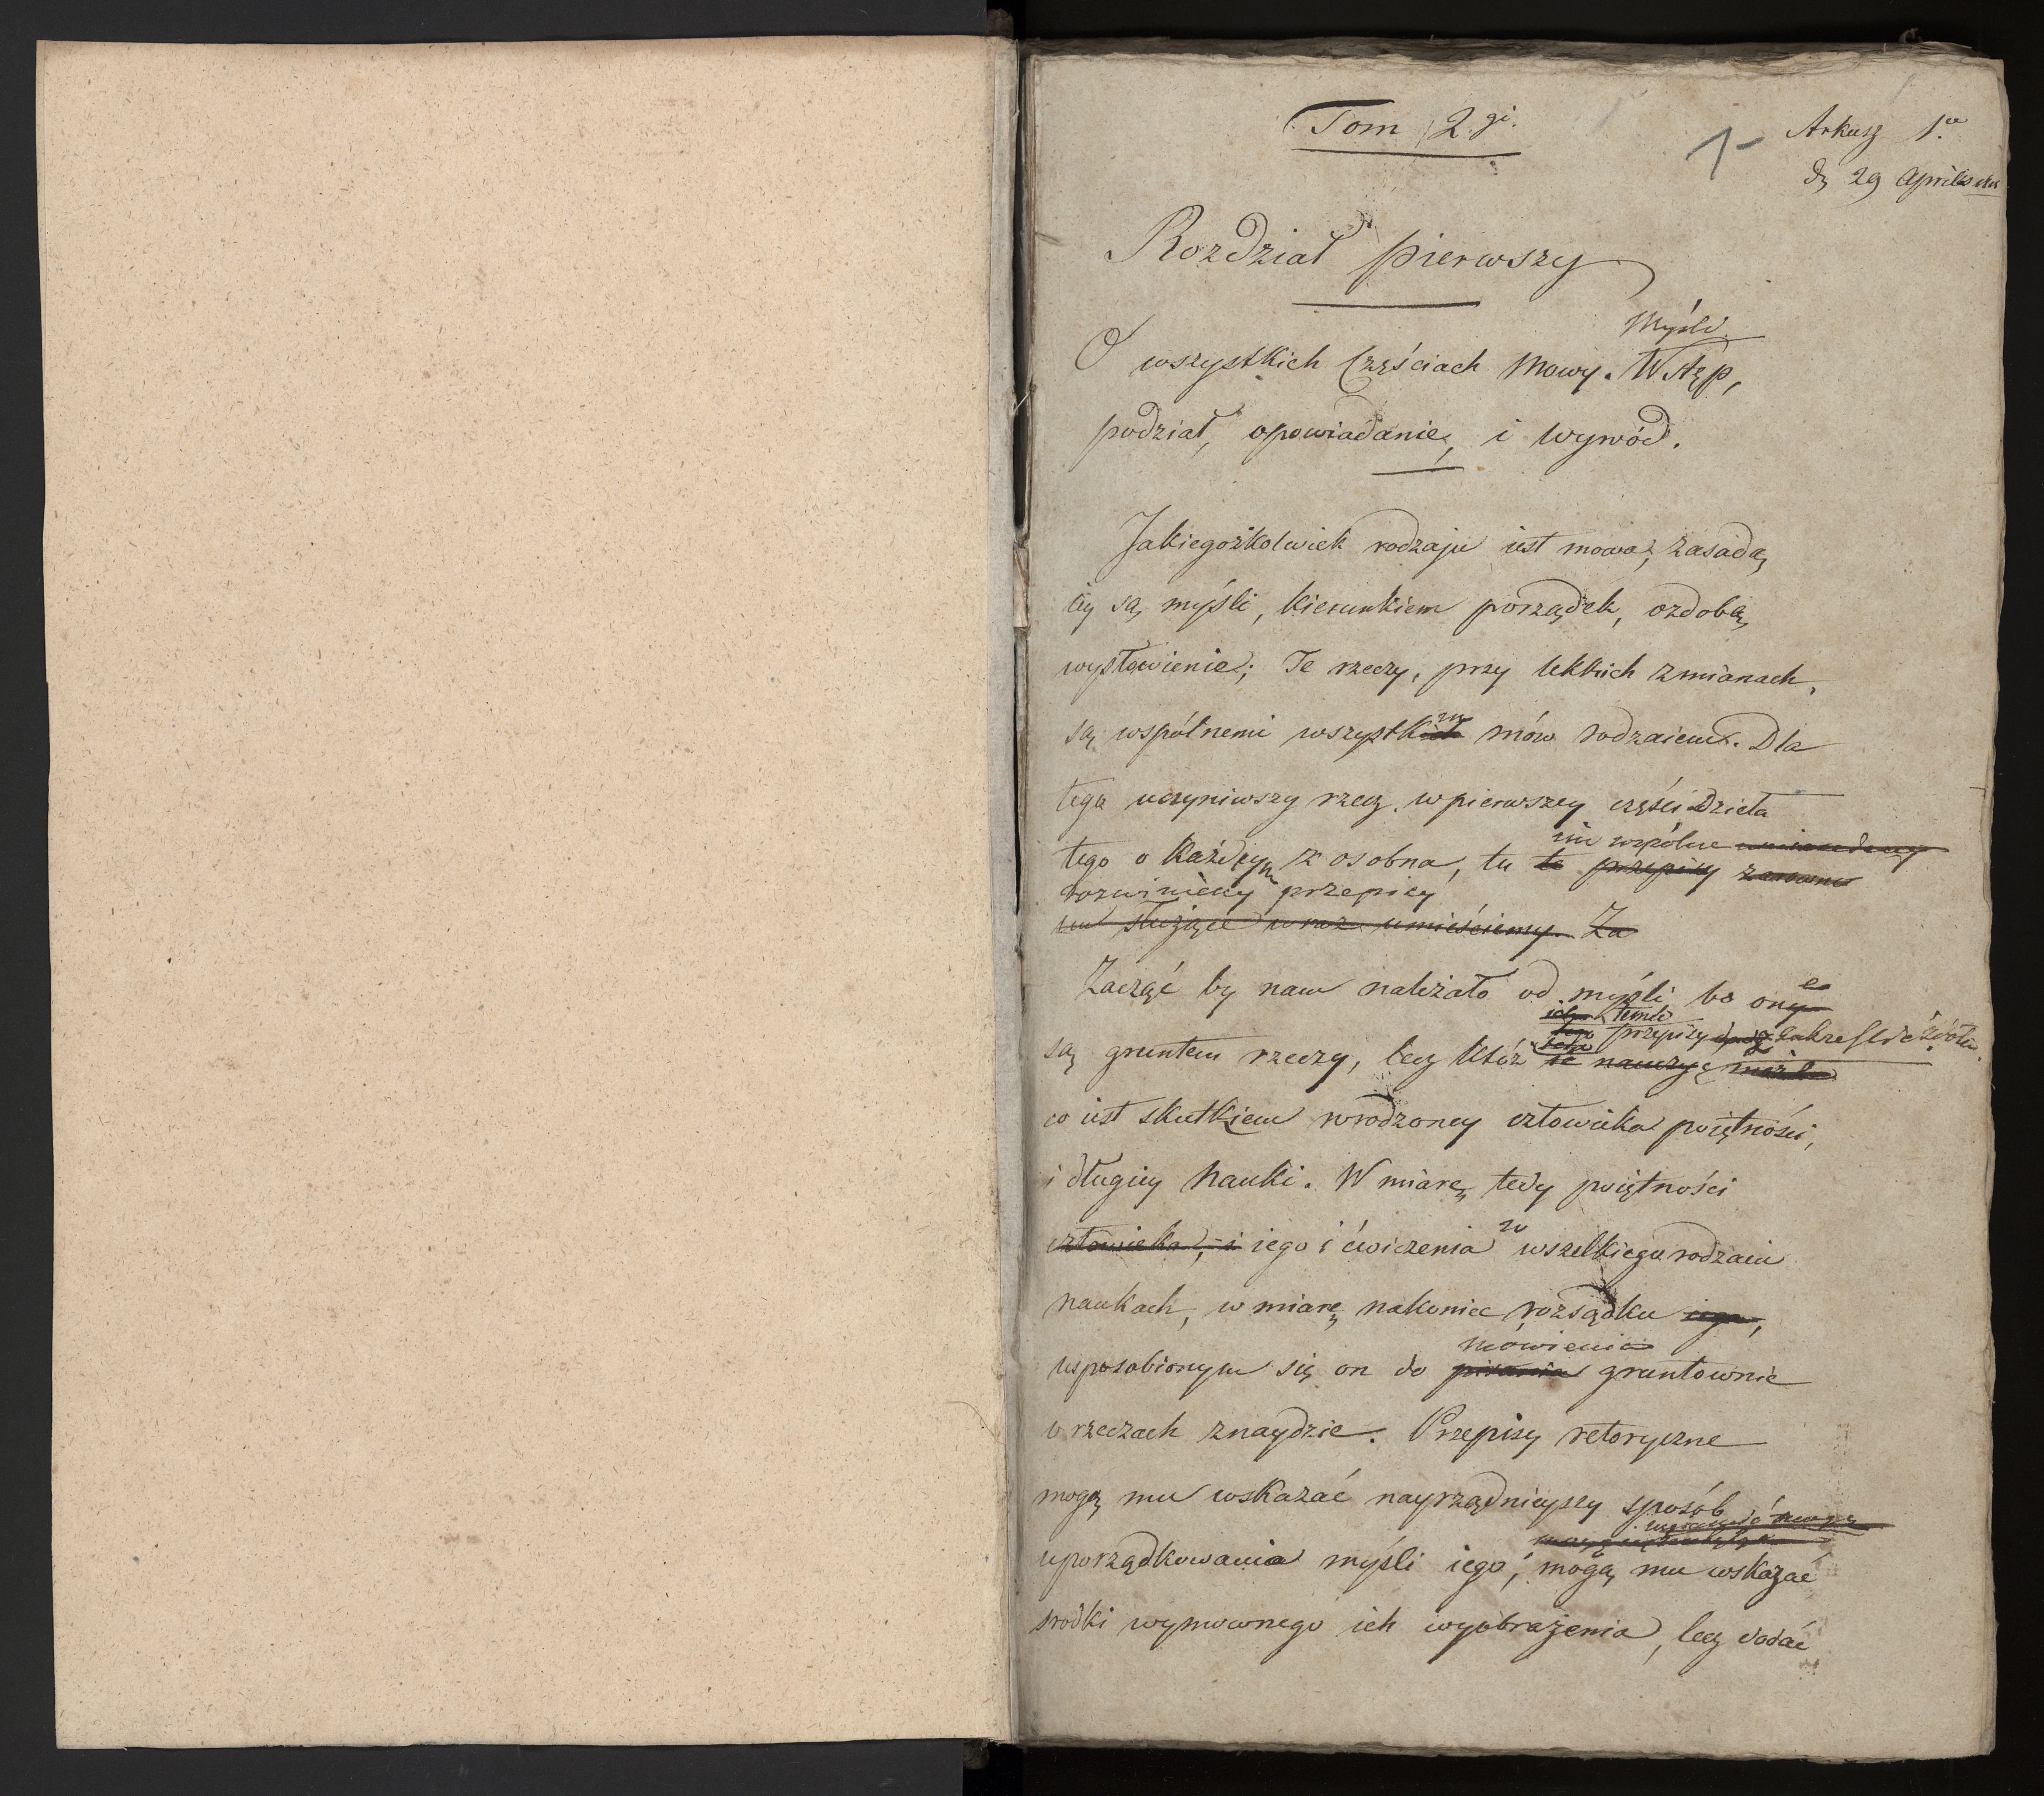 Tom 2.gi.
1-
Arkusz 1.
d. 29 Aprilis
Rozdział pierwszy
Myśli
O wszystkich Częściach Mowy. Wstęp,
podział, opowiadanie, i wywód.
Jakiegożkolwiek rodzaju iest mowa, zasadą
iey są myśli, kierunkiem porządek, ozdobą
wysłowienie; Te rzeczy, przy lekkich zmianach,
są wspólnemi wszystkim mów rodzaiem. Dla
tego uczyniwszy rzecz w pierwszey części Dzieła
im wspólne
tego o każdym z osobna, tu te przepisy zarowno
rozwiniemy przepisy
im służące wraz umieściemy. Za
Zacząć by nam należało od myśli, bo one
przepisy
są gruntem rzeczy, lecz któż te nauczyć
co iest skutkiem wrodzoney człowieka poiętności,
i długiey Nauki. W miarę tedy poiętności
człowieka, i iego i ćwiczenia w wszelkiego rodzaiu
naukach, w miarę nakoniec rozsądku iego,
mówienia
usposobionym się on do pisania gruntownie
o rzeczach znaydzie. Przepisy retoryczne
mogą mu wskazać nayrządnieyszy sposób
uporządkowania myśli iego, mogą mu wskazać
srodki wymownego ich wyobrażenia, lecz dodać